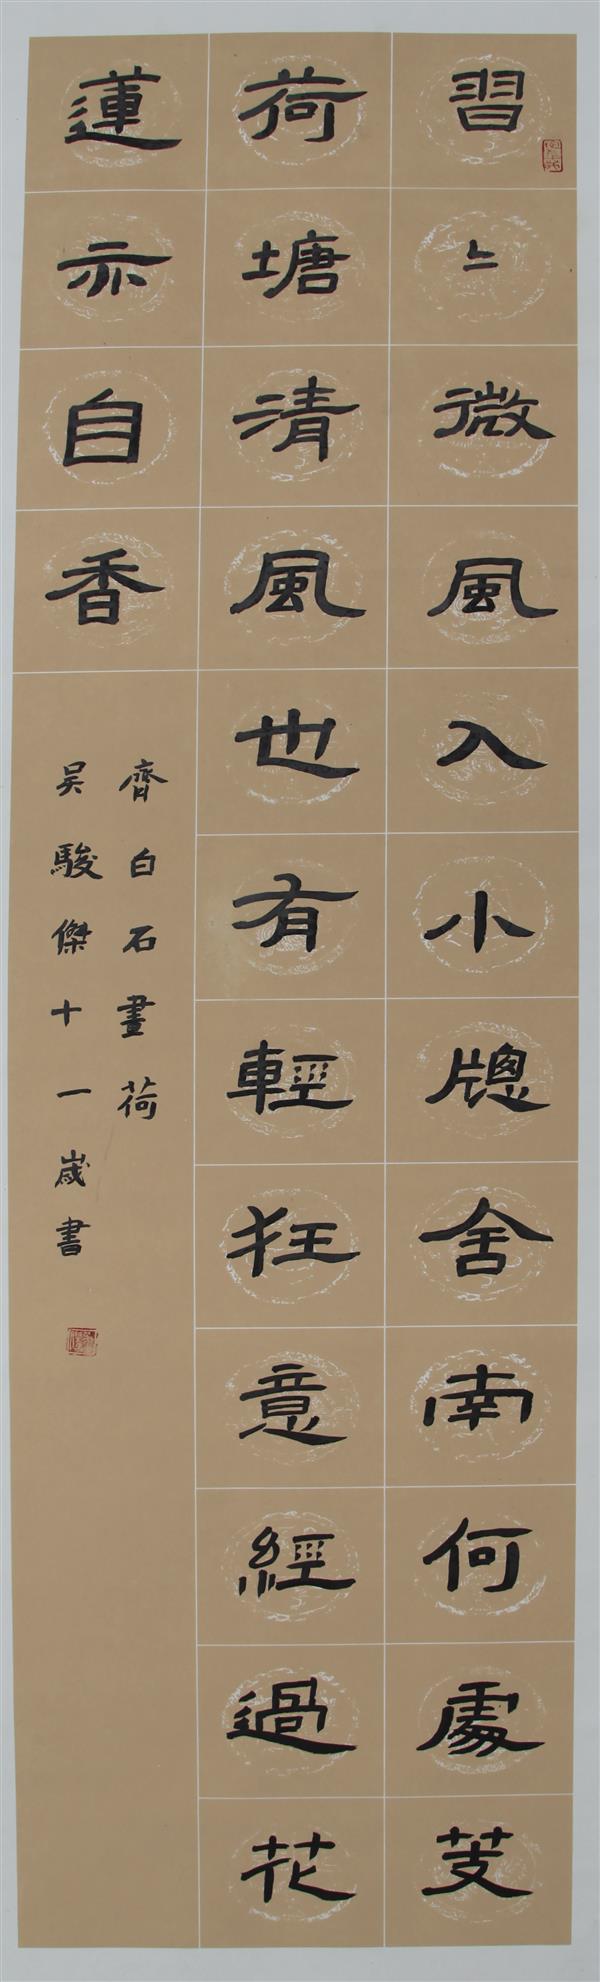 習〻微風入小牕舍南何處芰
荷塘清風也有輕狂意經過花
蓮亦自香
齊白石畫荷
吴駿傑十一歲書